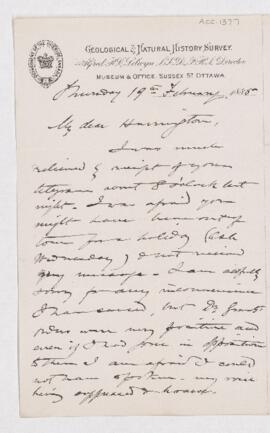 ACC-1377
GEOLOGICAL & NATURAL HISTORY SURVEY.
Alfred R.C. Selwyn, LL.D., F.R.S., Director.
MUSEUM & OFFICE, SUSSEX ST OTTAWA.
Thursday 19th February 1885
My dear Harrington,
I was much
relieved by receipt of your
telegram about 8 o'clock last
night. I was afraid you
might have been out of
town for a holiday (Ash
Wednesday) & not received
my message. I am awfully
sorry for any inconvenience
I have caused, but Dr Grant's
orders were very positive and
even if I had gone in opposition
to them I am afraid I could
not have spoken - my voice
being suppressed & hoarse.